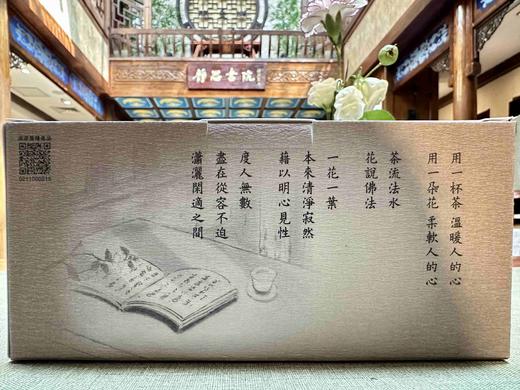 靜思書院
用一杯茶 溫暖人的心
用一朵花 柔軟人的心
茶流法水
花說佛法
一花一葉
本來清淨寂然
藉以明心見性
度人無數
盡在從容不迫
瀟灑閑適之間
0211000015